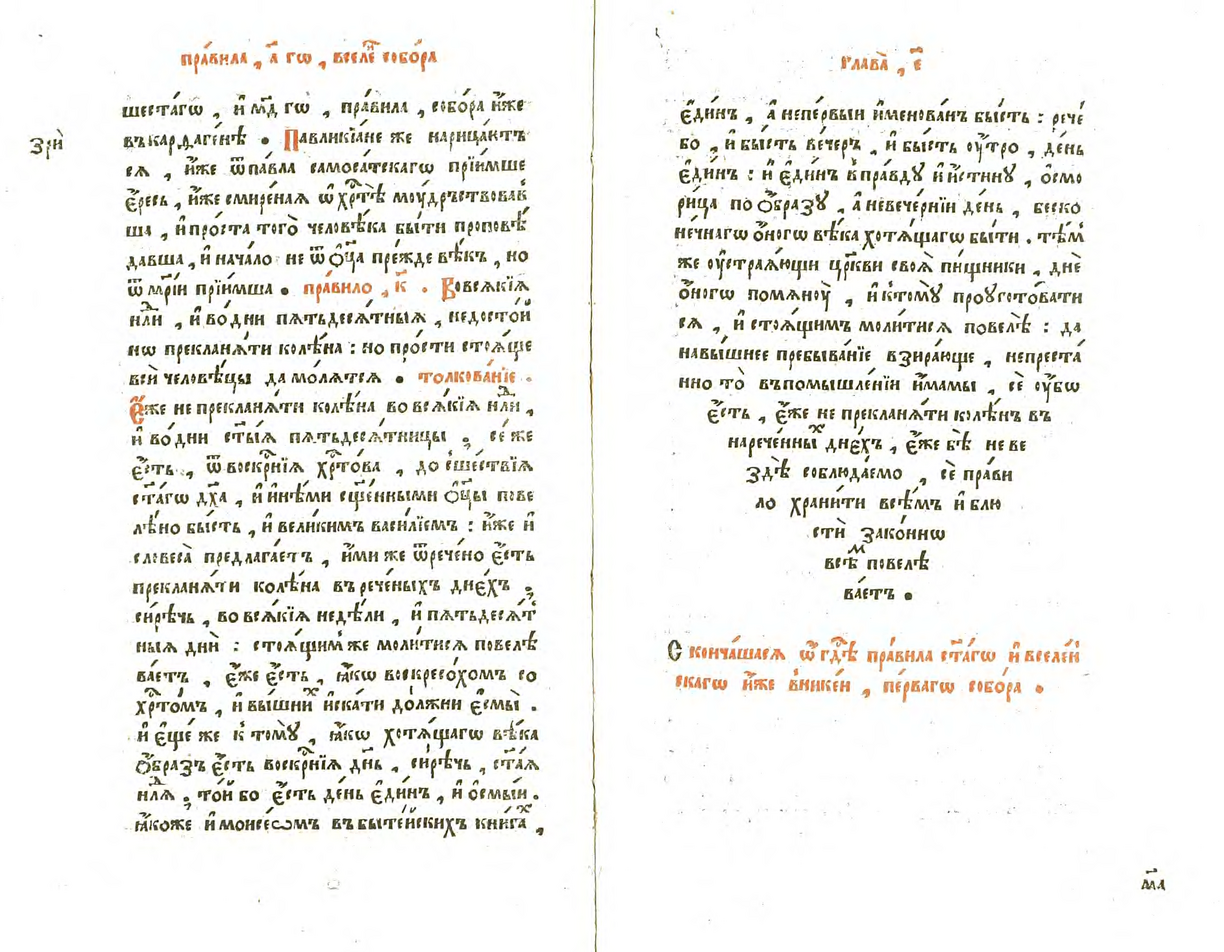 пра́вила , а҃ гѡ , вселе́ собо́ра
шеста́гѡ , и҆ м҃д гѡ , пра́вила , собо́ра и҆́же
зрѝ
въкарѳаге́нѣ . Павликїа́не же нарица́ютъ
сѧ , и҆́же ѿпа́вла самоса́тскагѡ прїи́мше
є҆́ресь , и҆́же смире́наѧ ѡ҆ хрⷭ҇тѣ̀ моу́дръствовав
ша , и҆про́ста того̀ человѣ́ка бы́ти проповѣ́
давша , и҆ нача́ло не ѿ ѻ҆ц҃а̀ пре́жде вѣ́къ , но
ѿ мр҃і́и прїи́мша . пра́вило , к҃ . Вовсѧ́кїѧ
нⷣли , и҆ во́дни пѧтьдесѧ́тныѧ , недосто́й
нѡ преклана́ти колѣ́на : но про́сти стоѧ́ще
всѝ человѣ́цы да мо́лѧтсѧ . толкова́нїе .
Є҆́же не преклонѧ́ти колѣ́на во всѧ́кїѧ нⷣли ,
и҆ во́дни ст҃ы́ѧ пѧтьдесѧ́тницы , се́ же
є҆́сть , ѿ воскрⷭ҇нїѧ хрⷭ҇то́ва , до сше́ствїѧ
ст҃а́гѡ дх҃а , и҆ и҆нѣ́ми сщ҃е́нными ѻ҆ц҃ы̀ пове
лѣ́но бы́сть , и҆ вели́кимъ васи́лїемъ : и҆́же и҆
словеса̀ предлага́етъ , и҆́ми же ѿрече́но є҆́сть
преклана́ти колѣ́на въ рече́ныхъ дне́хъ ,
си́рѣчь , во всѧ́кїѧ недѣ́ли , и҆ пѧтьдесѧ́т
ныѧ днѝ : стоѧ́щим же моли́тисѧ повелѣ
ва́етъ , є҆́же є҆́сть , ꙗ҆́кѡ воскресо́хомъ со
хрⷭ҇то́мъ , и҆ вы́шниⷯ и҆ска́ти до́лжни є҆смы̀ .
и҆ є҆ще́ же к томꙋ̀ , ꙗ҆́кѡ хотѧ́щагѡ вѣ́ка
ѻ҆́бразъ є҆́сть воскрⷭ҇нїѧ дн҃ь , си́рѣчь , ст҃а́ѧ
нⷣлѧ . то́й бо є҆́сть де́нь є҆ди́нъ , и҆ ѻ҆смы́и .
ꙗ҆́коже и҆ моисе́ѡмъ въ быте́йскихъ кни́гаⷯ ,
глава̀ , є҃
є҆ди́нъ , а҆ непе́рвыи и҆менова́нъ бы́сть : рече́
бо , и҆ бы́сть ве́черъ , и҆ бы́сть ᲂу҆́тро , де́нь
є҆ди́нъ : и҆ є҆ди́нъ вправдꙋ и҆ и҆́стинꙋ , ѻ҆смо
рица по ѻ҆́бразꙋ , а҆ невече́рнїи де́нь , беско
не́чнагѡ ѻ҆́ногѡ вѣ́ка хотѧ́щагѡ бы́ти . тѣ́м
же ᲂу҆страѧ́ющи цр҃кви своѧ̀ пи́щники , днѐ
ѻ҆́ногѡ помѧноу̀ , и҆ ктомꙋ̀ проугото́вати
сѧ , и҆ стоѧ́щимъ моли́тисѧ повелѣ̀ : да
навы́шнее пребыва́нїе взира́юще , непреста́
нно то̀ въпомышле́нїи и҆́мамы , сѐ ᲂу҆́бѡ
є҆́сть , є҆́же не преклана́ти колѣ́нъ въ
нарече́нныⷯ дне́хъ , є҆́же бѣ̀ не ве
здѣ̀ соблюда́емо , сѐ пра́ви
ло храни́ти всѣ́мъ и҆ блю
стѝ зако́ннѡ
всѣ́ⷨ повелѣ
ва́етъ .
Сконча́шасѧ ѡ҆ гдⷭ҇ѣ пра́вила ст҃а́гѡ и҆ вселе́н
скагѡ и҆́же вники́и , пе́рвагѡ собо́ра .
м҃а